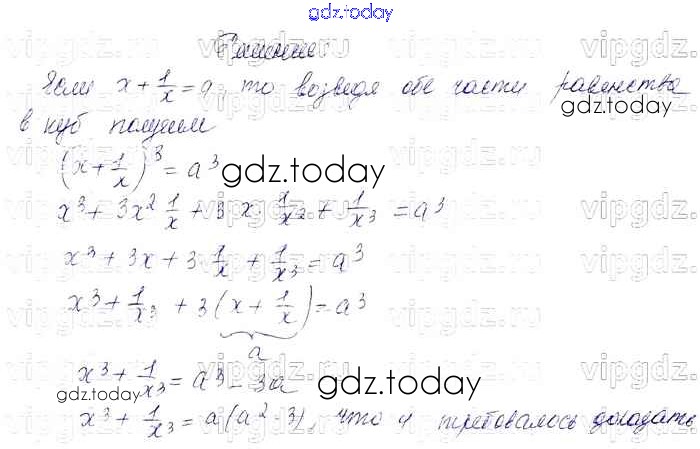 gdz.today
Решение:
Если x + 1/x = a, то возведя обе части равенства
gdz.today
в куб получим
(x + 1/x)^3 = a^3
gdz.today
x^3 + 3x^2 1/x + 3 x · 1/x^2 + 1/x^3 = a^3
x^3 + 3x + 3 1/x + 1/x^3 = a^3
x^3 + 1/x^3 + 3(x + 1/x) = a^3
a
x^3 + 1/x^3 = a^3 - 3a
gdz.today
gdz.today
x^3 + 1/x^3 = a(a^2 - 3), что и требовалось доказать
vipgdz.ru